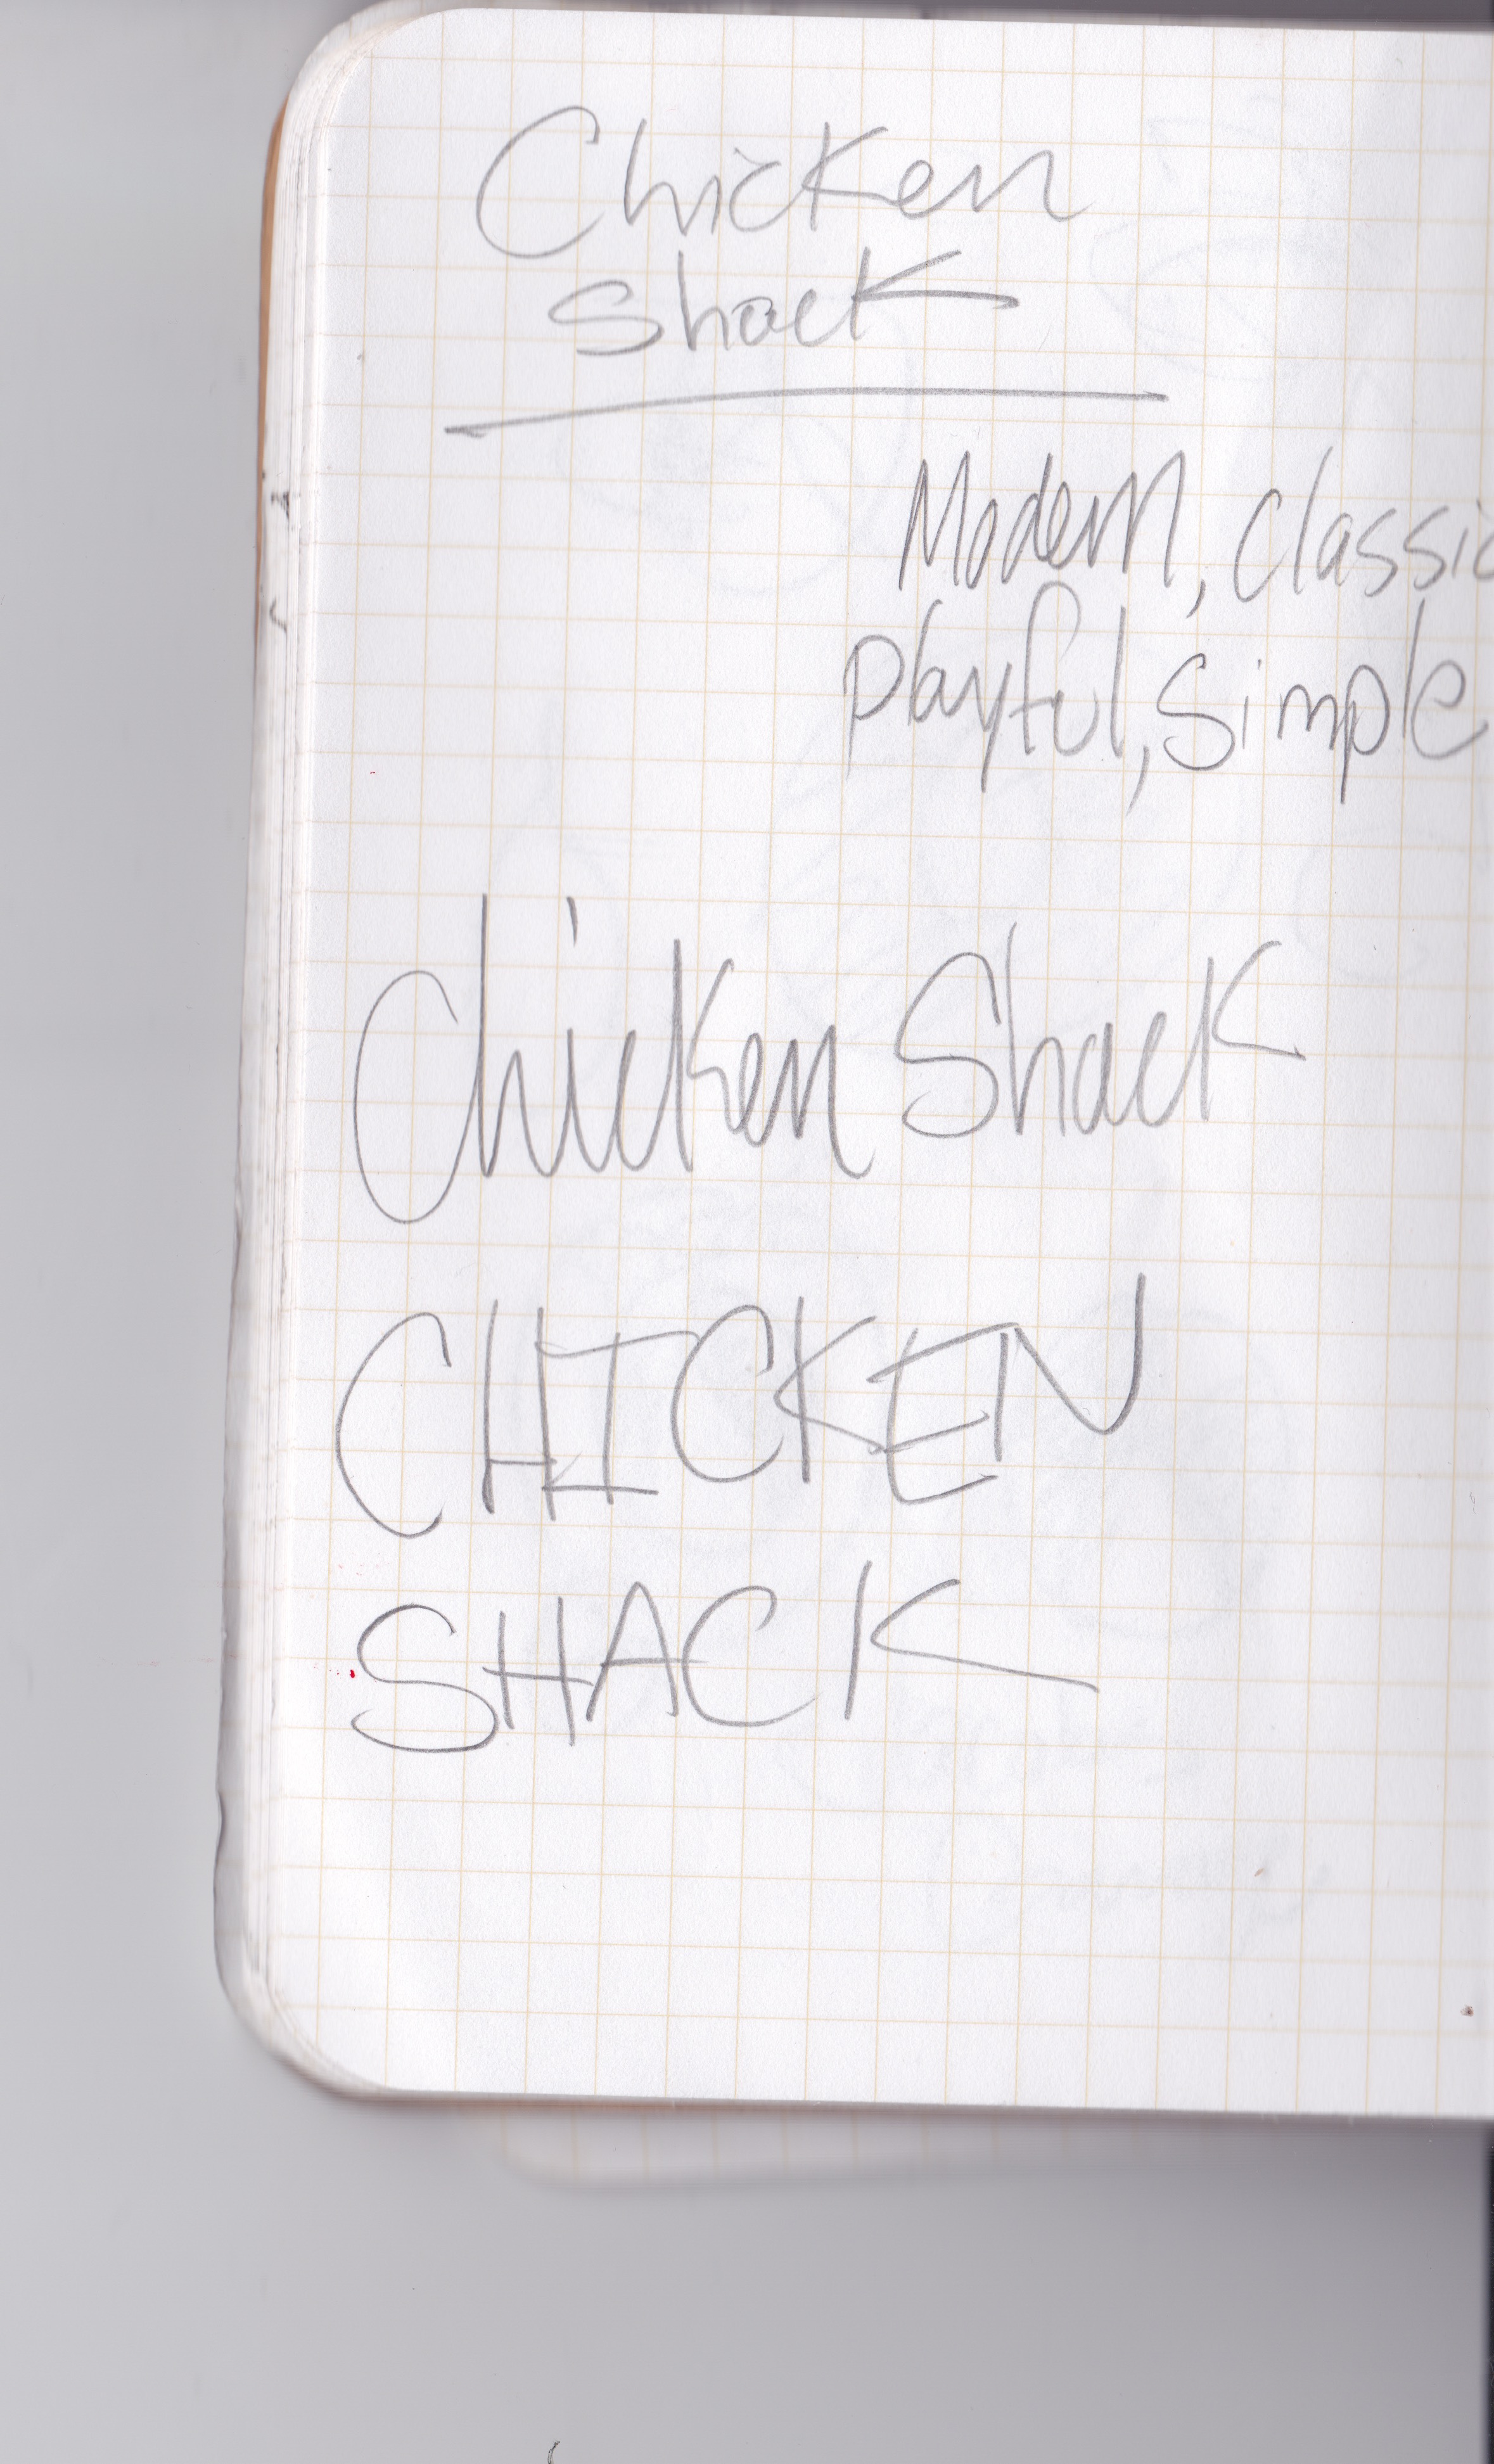 Chicken
Shack
Modern, Classic
Playful, Simple
Chicken Shack
CHICKEN
SHACK